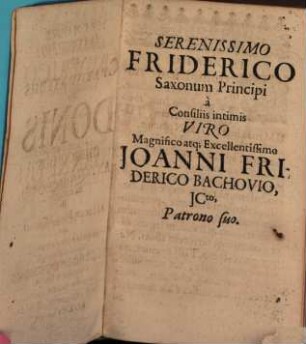 SERENISSIMO
FRIDERICO
Saxonum Principi
à
Consiliis intimis
VIRO
Magnifico atq; Excellentissimo
JOANNI FRI-
DERICO BACHOVIO,
JCto,
Patrono suo.